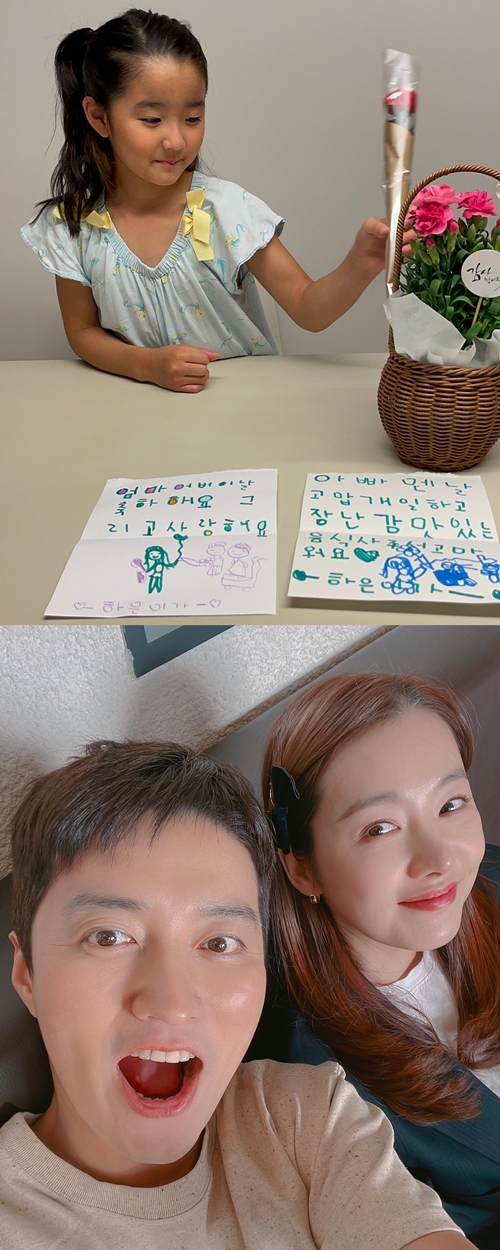 감사
엄마 어버이날
축하 해요 그
리고 사랑해요
하은이가
아빠 멘날
고맙개일하고
장난감맛있는
음식사주셔고마
와요
하은이가